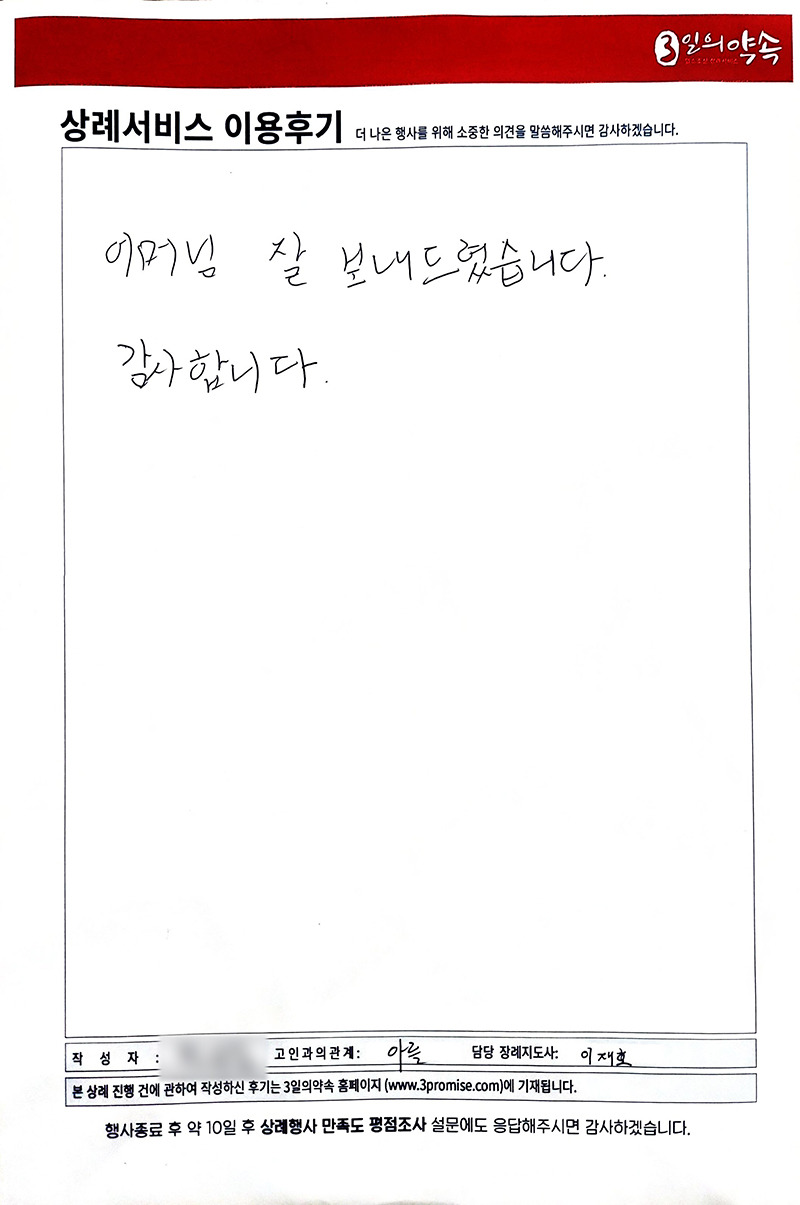 3일의약속
상례서비스 이용후기 더 나은 행사를 위해 소중한 의견을 말씀해주시면 감사하겠습니다.
어머님 잘 보내드렸습니다.
감사합니다.
작 성 자 : 고인과의관계: 아들 담당 장례지도사: 이재호
본 상례 진행 건에 관하여 작성하신 후기는 3일의약속 홈페이지 (www.3promise.com)에 기재됩니다.
행사종료 후 약 10일 후 상례행사 만족도 평점조사 설문에도 응답해주시면 감사하겠습니다.